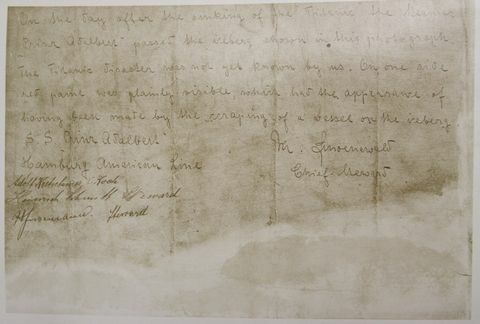 On the day after the sinking of the Titanic the steamer
Prinz Adalbert passed the iceberg shown in this photograph
The Titanic disaster was not yet known by us. On one side
red paint was plainly visible, which had the appearance of
having been made by the scraping of a vessel on the iceberg.
S. S. Prinz Adalbert
Mr.
Hamburg American Line
Chief Steward
Steward
Steward